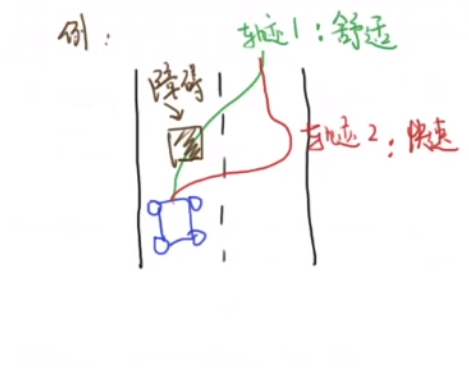 例：
轨迹1：舒适
障碍
轨迹2：快速